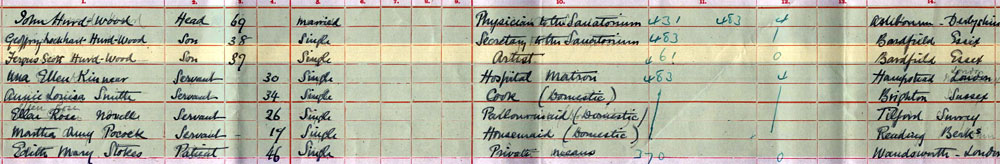 1. 2. 3. 4. 5. 6. 7. 8. 9. 10. 11. 12. 13. 14.
John Hurd-Wood Head 69 married Physician to the Sanatorium 431 483 4 Ashbourne - Derbyshire
Geoffrey Lockhart Hurd-Wood Son 38 Single Secretary to the Sanatorium 483 1 Bardfield Essex
Fergus Scott Hurd-Wood Son 37 Single Artist 461 0 Bardfield Essex
Ellen Kinnear Servant 30 Single Hospital Matron 483 4 Hampstead London
Annie Louisa Smith Servant 34 Single Cook (Domestic) 1 Brighton Sussex
Ellen Rose Novell Servant 26 Single Parlourmaid (Domestic) 1 Tilford Surrey
Martha Amy Pocock Servant 17 Single Housemaid (Domestic) Reading Berks
Edith Mary Stokes Patient 46 Single Private means 370 0 Wandsworth - London